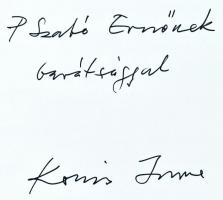 P Szabó Ernőnek
barátsággal
Konis Imre